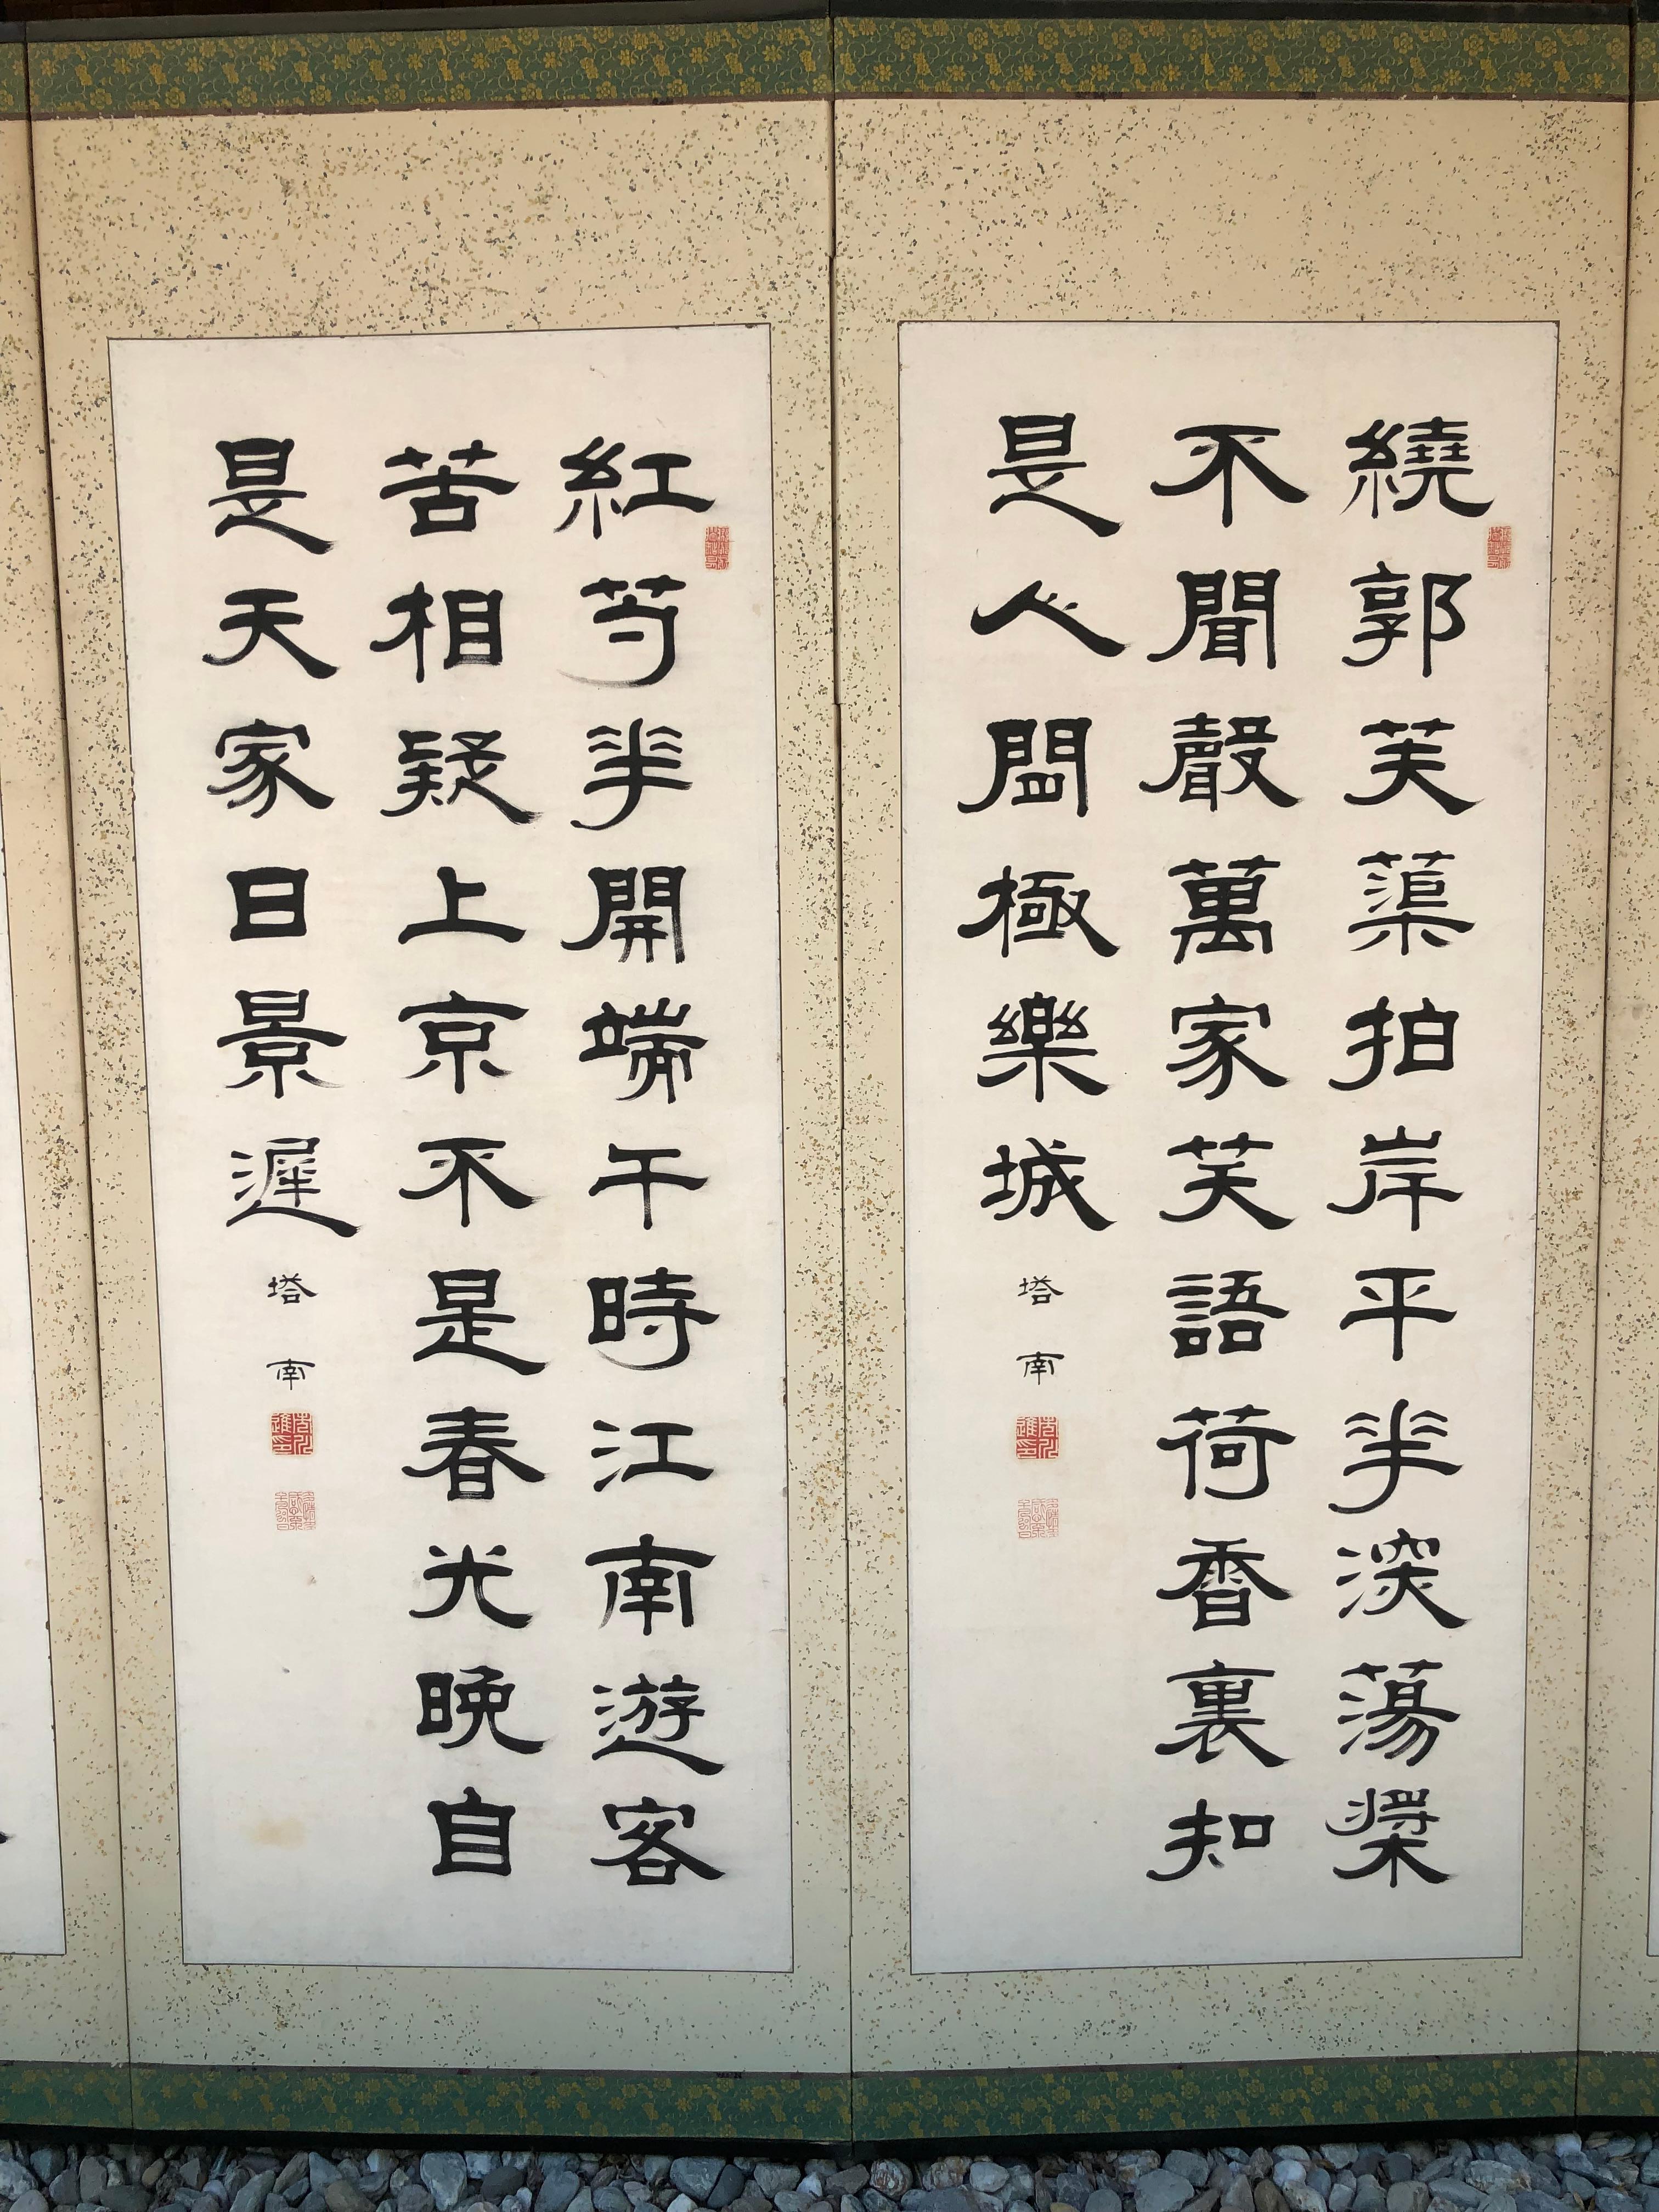 繞郭芙蕖拍岸平花深蕩槳
不聞聲萬家笑語荷香裏知
是人間極樂城
塔南
紅芍花開端午時江南遊客
苦相疑上京不是春光晚自
是天家日景遲
塔南